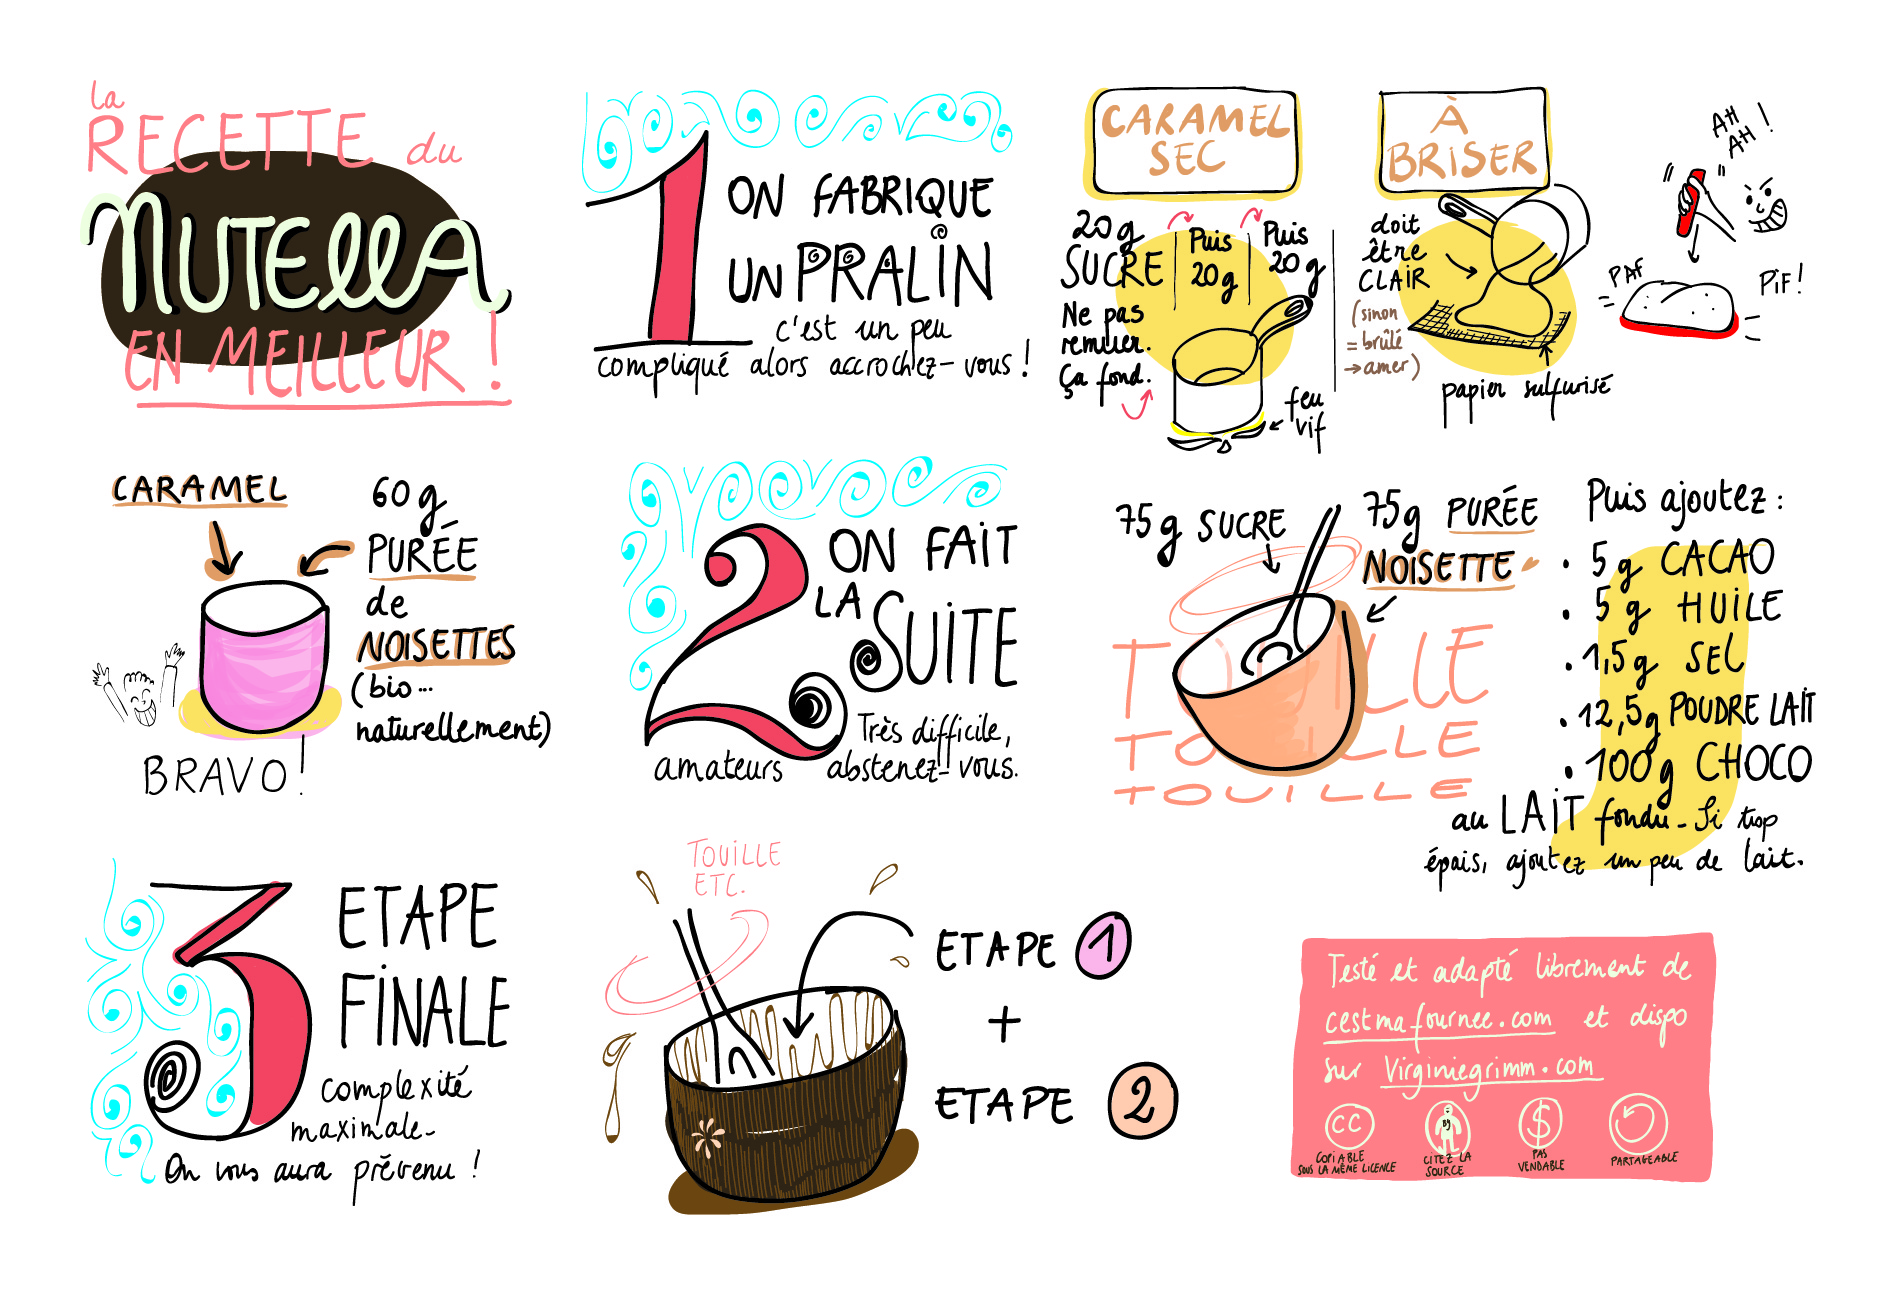 la
RECETTE du
NUTELLA
EN MEILLEUR !
1
ON FABRIQUE
UN PRALIN
c'est un peu
compliqué alors accrochez-vous !
CARAMEL
SEC
20g
SUCRE
Puis
20g
Puis
20g
Ne pas
remuer.
Ça fond.
feu
vif
À
BRISER
doit
être
CLAIR
(sinon
= brûlé
→ amer)
papier sulfurisé
AH
AH !
PAF
PiF!
CARAMEL
60g
PURÉE
de
NOISETTES
(bio...
naturellement)
BRAVO!
2
ON FAIT
LA SUITE
Très difficile,
amateurs abstenez-vous.
75g SUCRE
75g PURÉE
NOISETTE
TOUILLE
TOUILLE
TOUILLE
Puis ajoutez :
• 5g CACAO
• 5g HUILE
• 1,5g SEL
• 12,5g POUDRE LAIT
• 100g CHOCO
au LAIT fondu - Si trop
épais, ajoutez un peu de lait.
3
ETAPE
FINALE
complexité
maximale-
On vous aura prévenu !
TOUILLE
ETC.
ETAPE 1
+
ETAPE 2
Testé et adapté librement de
cestmafournee.com et dispo
sur Virginiegrimm.com
CC
BY
$
COPIABLE
SOUS LA MÊME LICENCE
CITEZ LA
SOURCE
PAS
VENDABLE
PARTAGEABLE